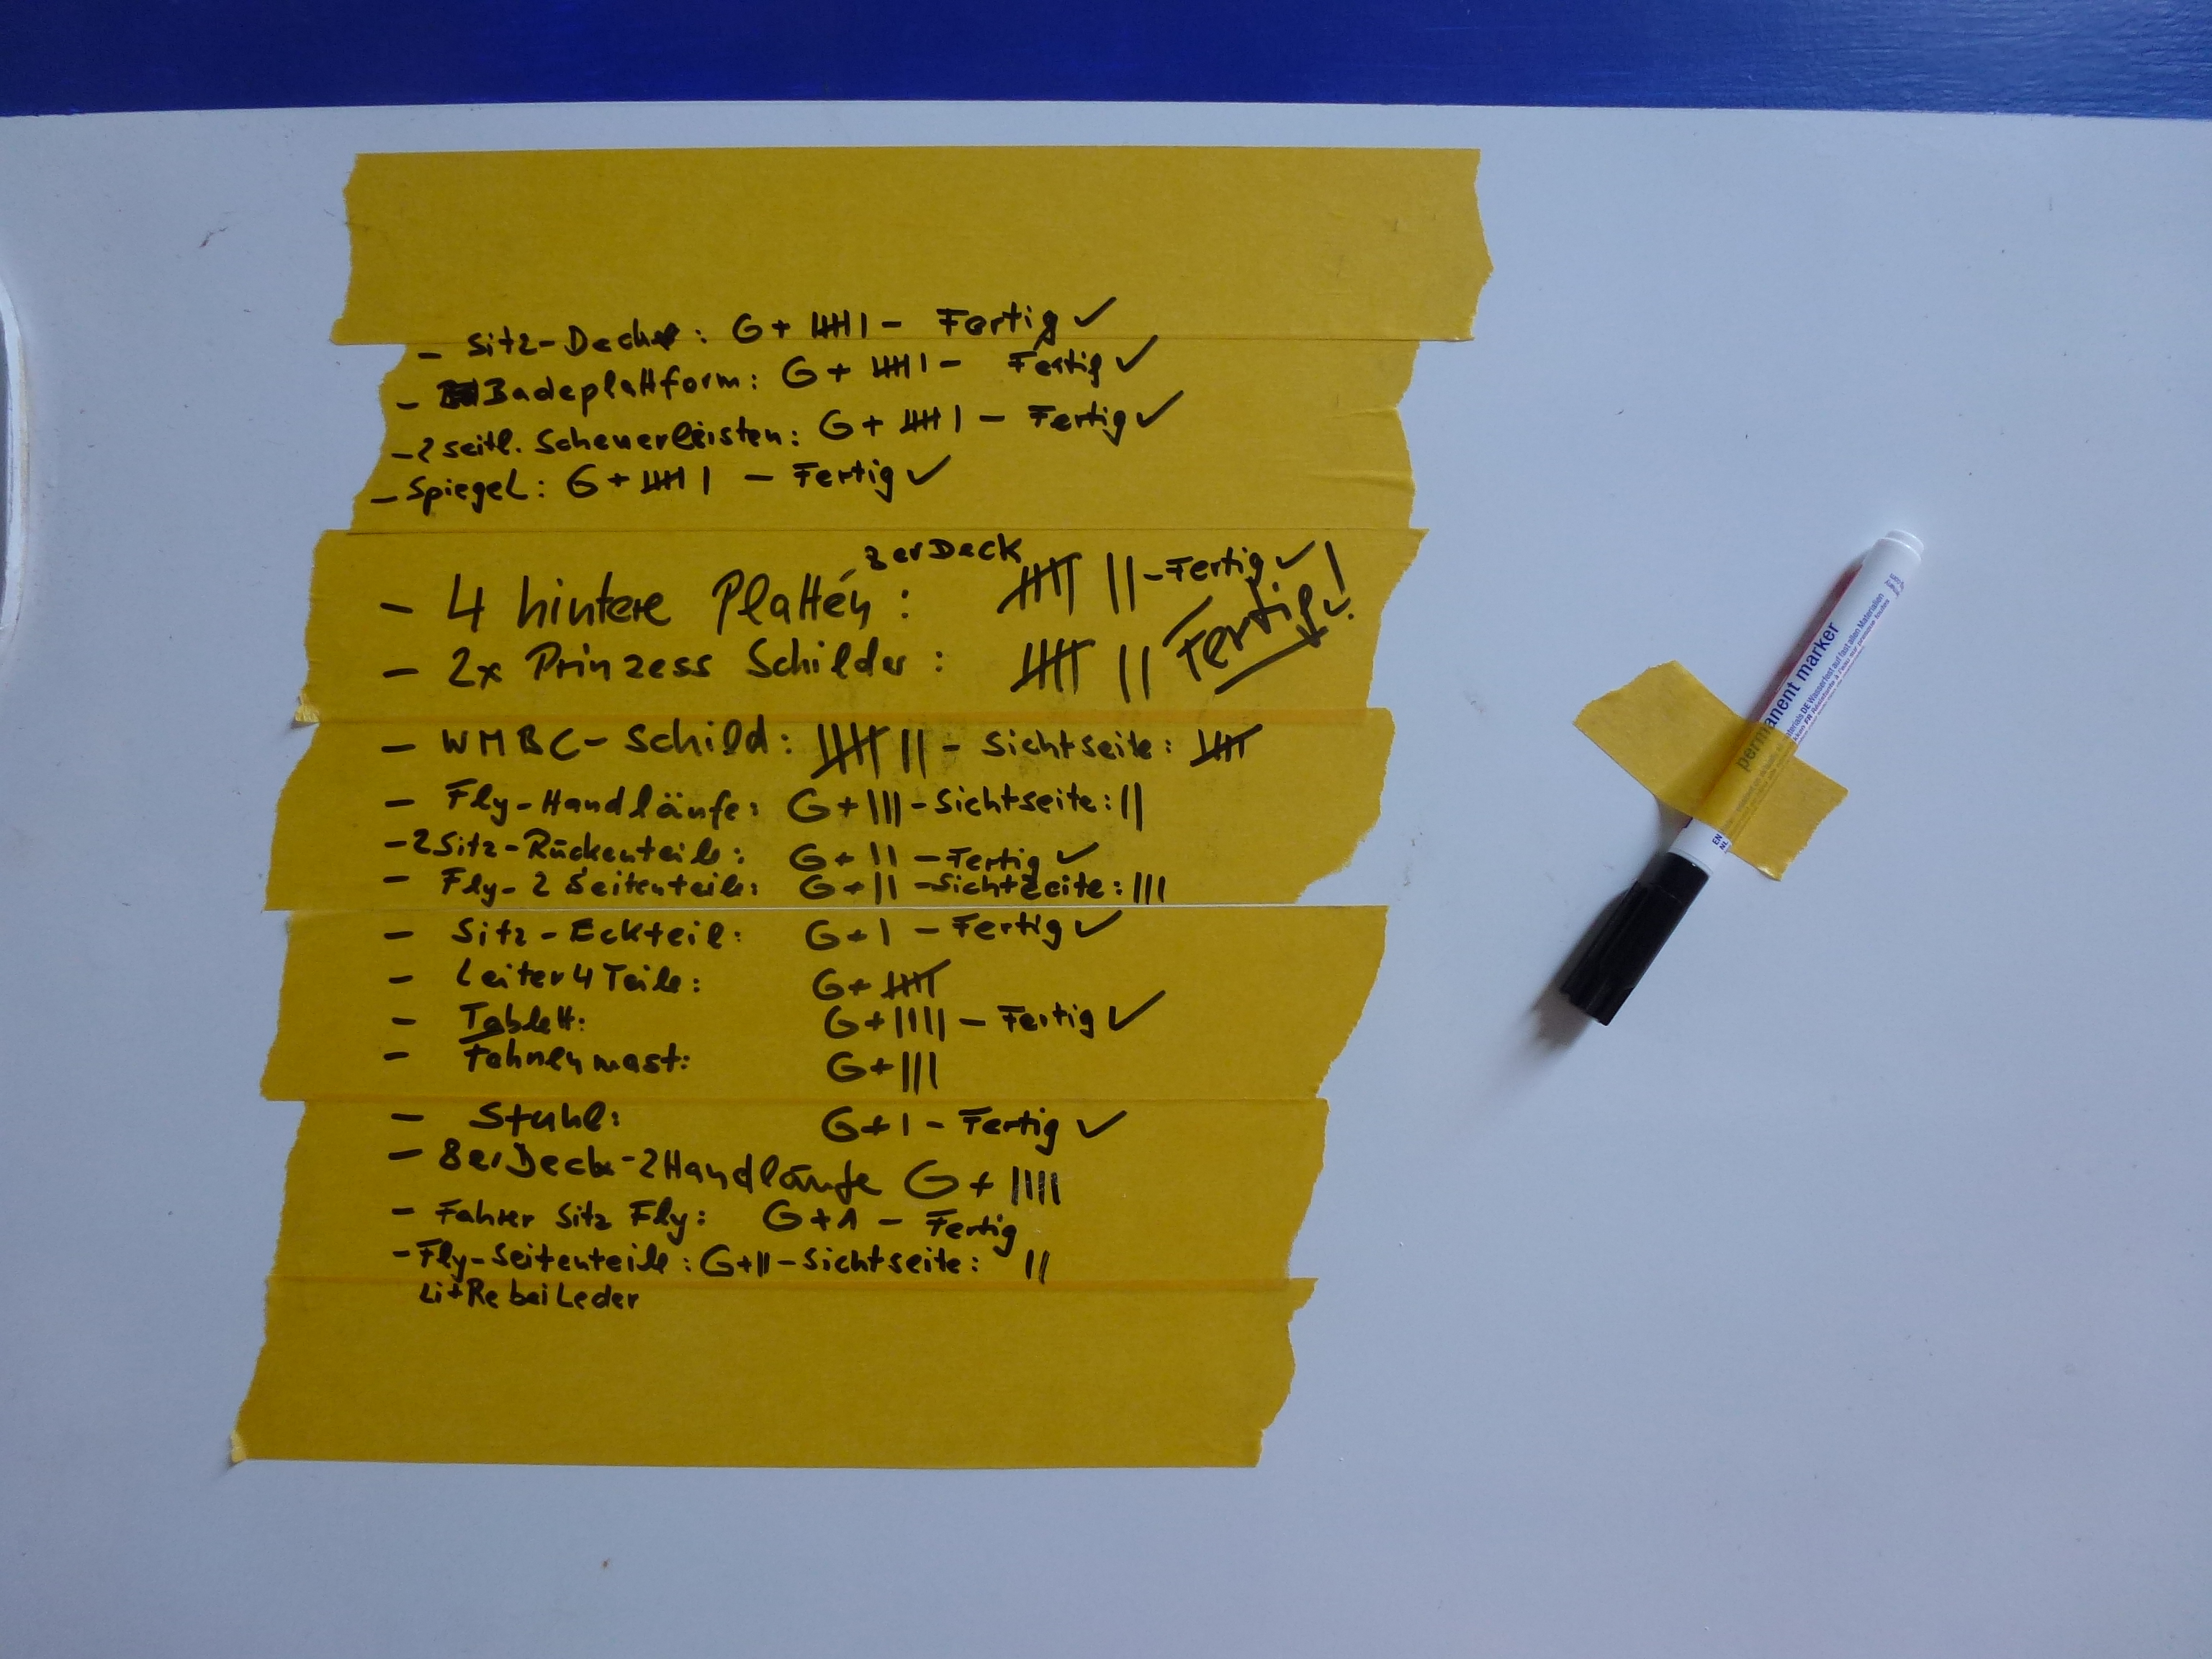 - Sitz-Deck: G+ 𝍸 I - Fertig ✓
- Badeplattform: G+ 𝍸 I - Fertig ✓
- 2 seitl. Scheuerleisten: G+ 𝍸 I - Fertig ✓
- Spiegel: G+ 𝍸 I - Fertig ✓
8erDeck
- 4 hintere Platten: 𝍸 II - Fertig ✓
- 2x Prinzess Schilder: 𝍸 II Fertig ✓!
- WMBC-Schild: 𝍸 II - Sichtseite: 𝍸
- Fly-Handläufe: G+III - Sichtseite: II
- 2 Sitz-Rückenteile: G+II - Fertig ✓
- Fly-2 Seitenteile: G+II - Sichtseite: III
- Sitz-Eckteil: G+I - Fertig ✓
- Leiter 4 Teile: G+ 𝍸
- Tablett: G+IIII - Fertig ✓
- Fahnenmast: G+III
- Stuhl: G+I - Fertig ✓
- 8er Deck-2Handläufe G+IIII
- Fahrer Sitz Fly: G+1 - Fertig
- Fly-Seitenteile: G+II - Sichtseite: II
Li+Re bei Leder
permanent marker